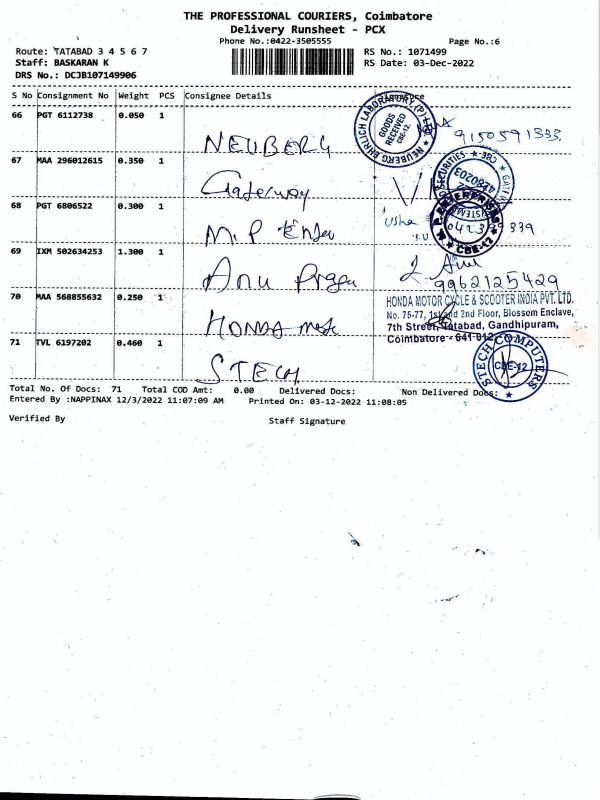 THE PROFESSIONAL COURIERS, Coimbatore
Delivery Runsheet - PCX
Phone No.:0422-3505555
Page No.:6
Route: TATABAD 3 4 5 6 7
RS No.: 1071499
Staff: BASKARAN K
RS Date: 03-Dec-2022
DRS No.: DCJB107149906
S No Consignment No Weight PCS Consignee Details
66 PGT 6112738 0.050 1 NEUBERG 9150591333
NEUBERG EHRLICH LABORATORY (P) LTD
GOODS
RECEIVED
CBE-12.
67 MAA 296012615 0.350 1 Gateway
SECURITIES CBE
4280203
68 PGT 6806522 0.300 1 M.P
Usha 339
M.P. ENTERPRISES
CBE-12
69 IXM 502634253 1.300 1 Anu
9962125429
70 MAA 568855632 0.250 1 HONDA
HONDA MOTOR CYCLE & SCOOTER INDIA PVT. LTD.
No. 75-77, 1st and 2nd Floor, Blossom Enclave,
7th Street, Tatabad, Gandhipuram,
Coimbatore - 641 012
71 TVL 6197202 0.460 1 STECH
STECH COMPUTERS
CBE-12
Total No. Of Docs: 71 Total COD Amt: 0.00 Delivered Docs: Non Delivered Docs:
Entered By :NAPPINAX 12/3/2022 11:07:09 AM Printed On: 03-12-2022 11:08:05
Verified By Staff Signature